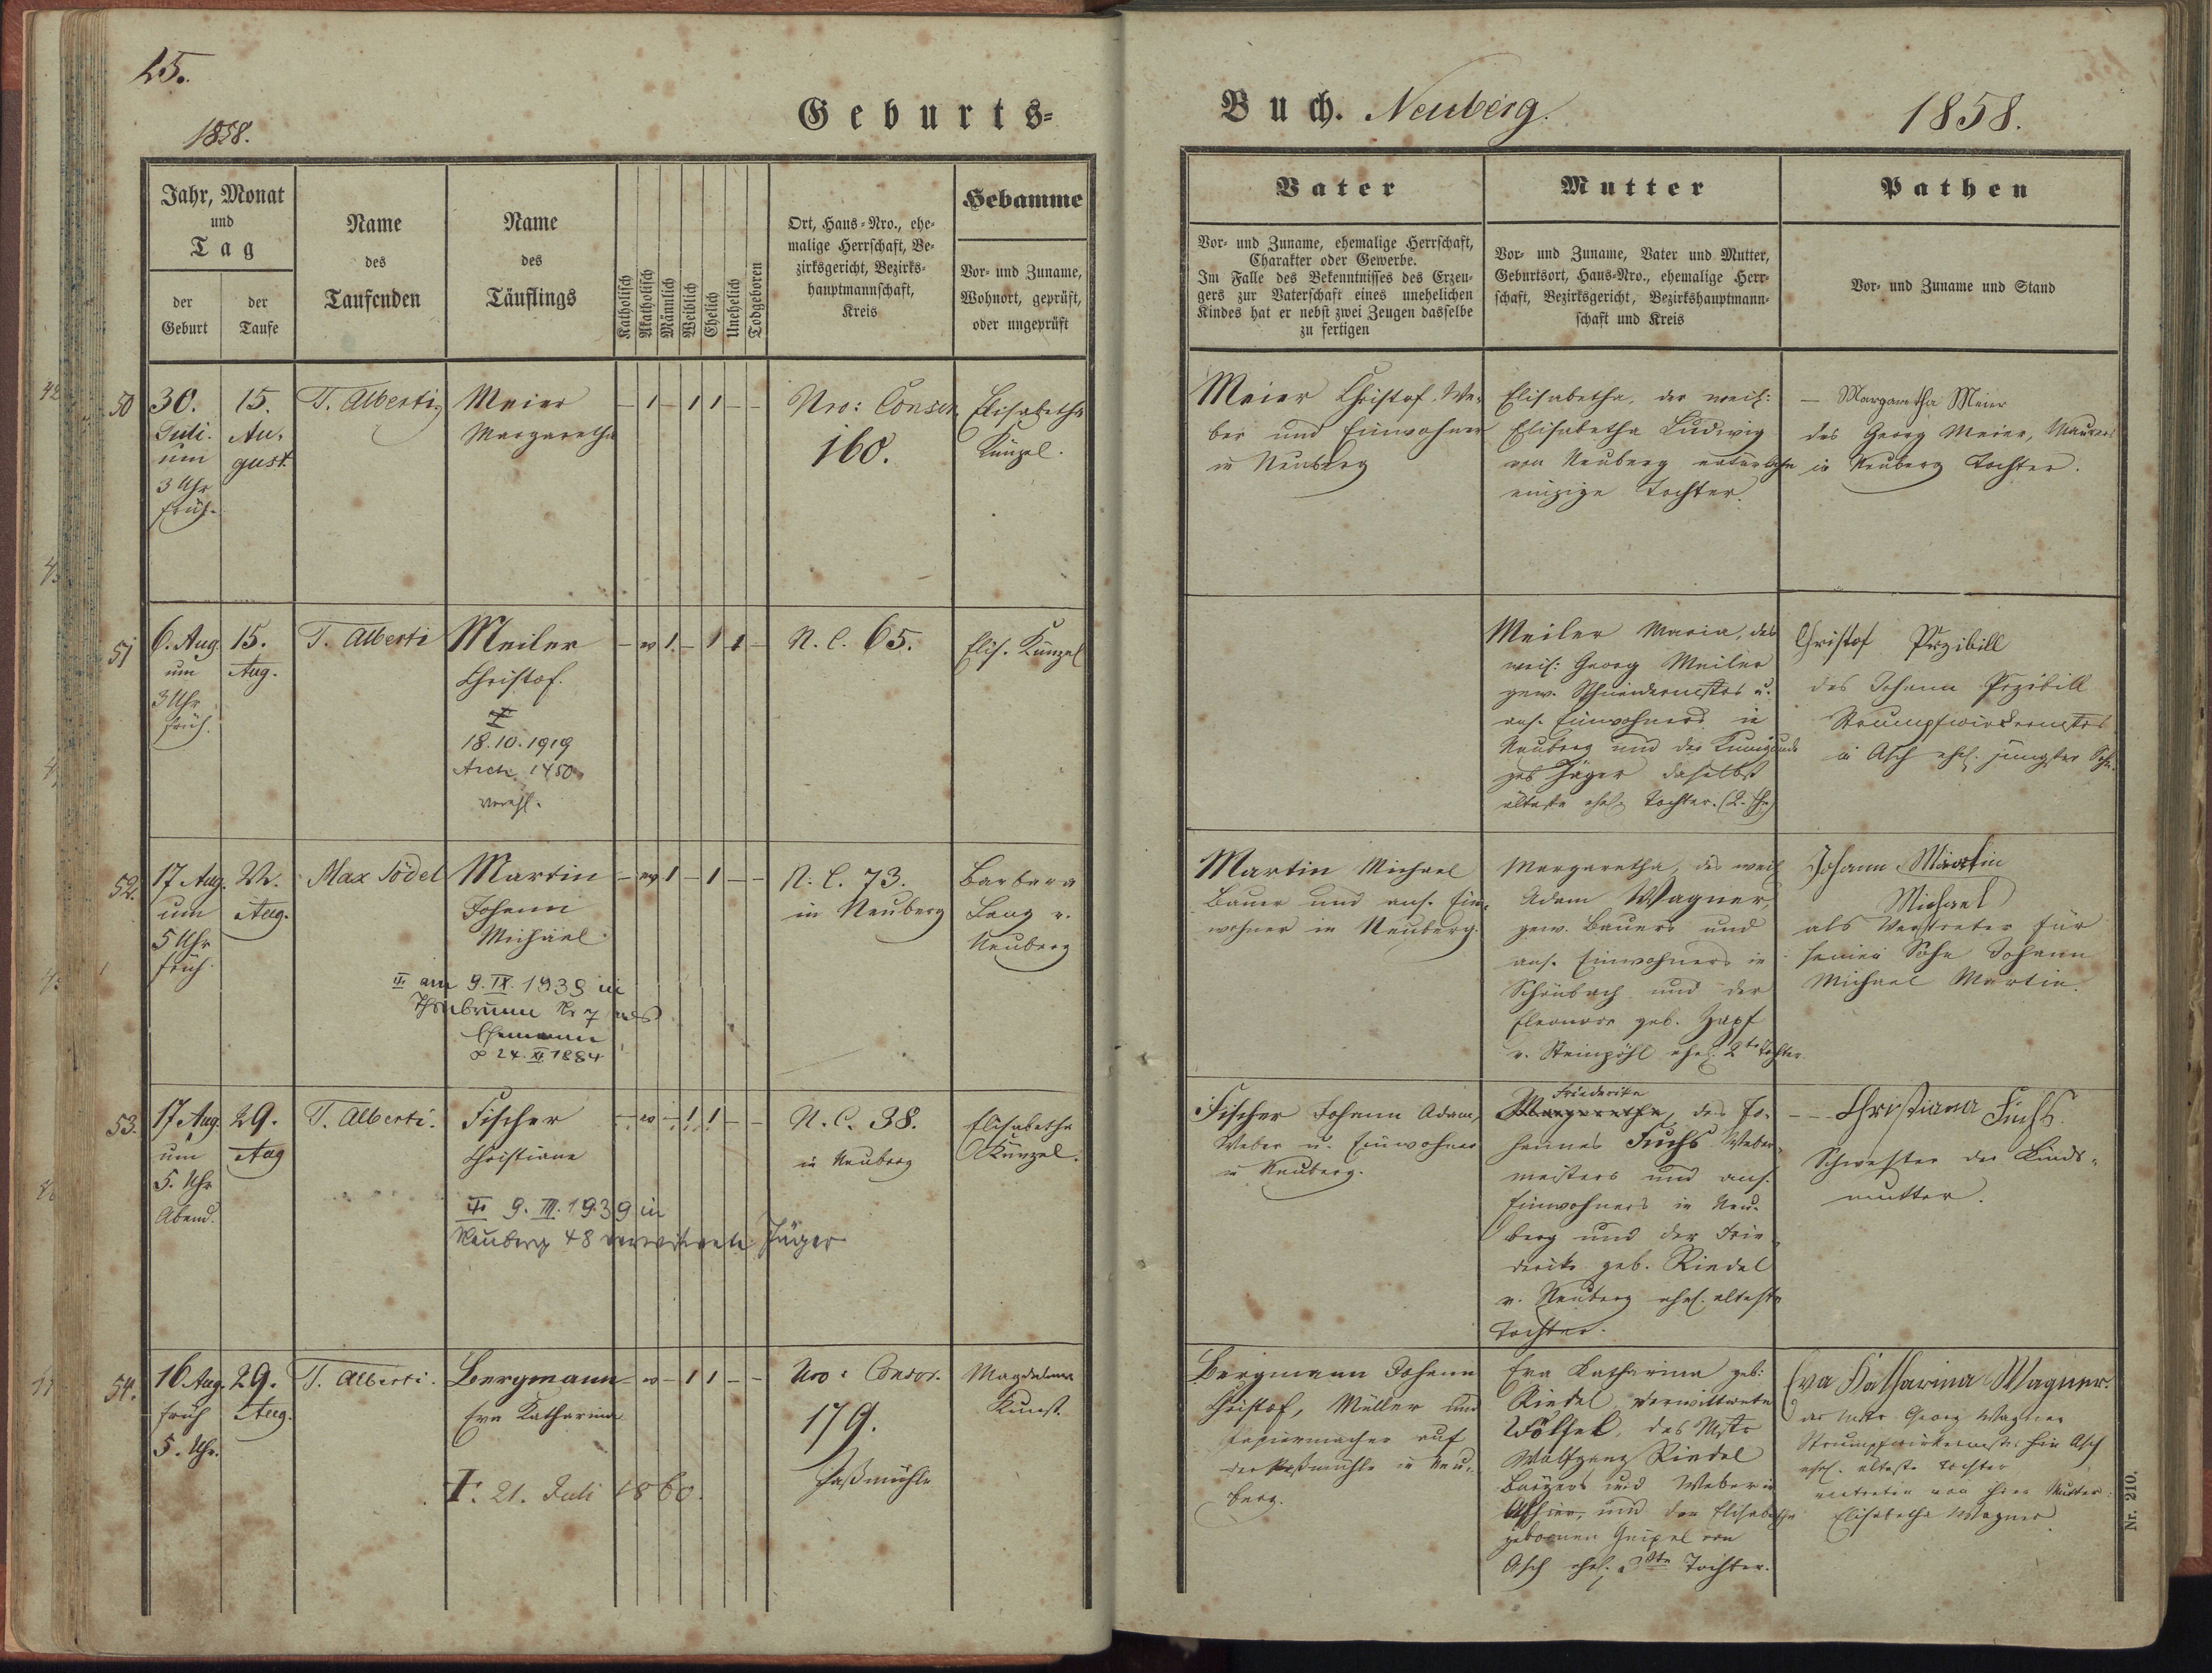 25.
1858.
Geburts-
Jahr, Monat
und
Tag
der
Geburt
der
Taufe
Name
des
Taufenden
Name
des
Täuflings
Katholisch
Akatholisch
Männlich
Weiblich
Ehelich
Unehelich
Todgeboren
Ort, Haus-Nro., ehe-
malige Herrschaft, Be-
zirksgericht, Bezirks-
hauptmannschaft,
Kreis
Hebamme
Vor- und Zuname,
Wohnort, geprüft,
oder ungeprüft
50
30.
Juli.
um
3 Uhr
früh.
15.
Au-
gust.
T. Alberti
Meier
Margaretha
- 1 - 1 1 - -
Nro: Conscr.
160.
Elisabetha
Künzel.
51
6. Aug.
um
3 Uhr
früh.
15.
Aug.
T. Alberti
Meiler
Christof.
18.10.1919
Asch 1450
verehl.
N. C. 65.
Elis. Künzel
52.
17 Aug.
um
5 Uhr
früh.
22.
Aug.
Max Jödel
Martin
Johann
Michael
am 9. IX. 1939 in
Thonbrunn Nr 7 als
Ehemann
∞ 24. XI 1884
N. C. 73.
in Neuberg
Barbara
Lang v.
Neuberg
53.
17 Aug.
um
5. Uhr
Abend.
29.
Aug
T. Alberti.
Fischer
Christiane
9. III. 1939 in
Neuberg 48 verwitwete Jäger
N. C. 38.
in Neuberg
Elisabetha
Künzel.
54.
16 Aug.
früh
5. Uhr.
29.
Aug.
T. Alberti.
Bergmann
Eva Katharina
†. 21. Juli 1860.
Nro: Conscr.
179.
Magdalena
Kunst.
Buch. Neuberg.
1858.
Vater
Vor- und Zuname, ehemalige Herrschaft,
Charakter oder Gewerbe.
Im Falle des Bekenntnisses des Erzeu-
gers zur Vaterschaft eines unehelichen
Kindes hat er nebst zwei Zeugen dasselbe
zu fertigen
Mutter
Vor- und Zuname, Vater und Mutter,
Geburtsort, Haus-Nro., ehemalige Herr-
schaft, Bezirksgericht, Bezirkshauptmann-
schaft und Kreis
Pathen
Vor- und Zuname und Stand
Meier Christof, We-
ber und Einwohner
in Neuberg
Elisabetha, der weil:
Elisabetha Ludwig
von Neuberg
einzige Tochter.
- Margaretha Meier
des Georg Meier, Maurers
in Neuberg Tochter.
Meiler Maria, des
weil: Georg Meiler
gew. Schneidermstrs u.
ans. Einwohners in
Neuberg und der Kunigunda
geb Jäger daselbst
älteste ehel. Tochter.
Christof Przibill
des Johann Przibill
Strumpfwirkermstrs
in Asch ehel. jüngster Sohn.
Martin Michael
Bauer und ans. Ein-
wohner in Neuberg.
Margaretha, des weil
Adam Wagner,
gew. Bauers und
ans. Einwohners in
Schönbach und der
Eleonore geb. Zapf
v. Steinpöhl ehel. 2te Tochter
Johann Martin
Michael
als Vertreter für
seinen Sohn Johann
Michael Martin.
Fischer Johann Adam,
Weber u. Einwohner
in Neuberg.
Friederike
Margaretha, des Jo-
hannes Fuchs Weber-
meisters und ans.
Einwohners in Neu-
berg und der Frie-
derike geb. Riedel
v. Neuberg ehel. älteste
Tochter.
- Christiana Fuchs.
Schwester der Kinds-
mutter.
Bergmann Johann
Christof, Müller und
Papiermacher auf
in Neu-
berg.
Eva Katharina geb:
Riedel, verwittwete
Wölfel, des Mstr
Wolfgang Riedel
Bürgers und Weber in
Asch und der Elisabetha
gebornen Geipel von
Asch ehel. Tochter.
Eva Katharina Wagner.
des Mstr Georg Wagner
Strumpfwirkermstr Asch
ehel. älteste Tochter
vertreten von ihrer Mutter:
Elisabetha Wagner
Nr. 210.